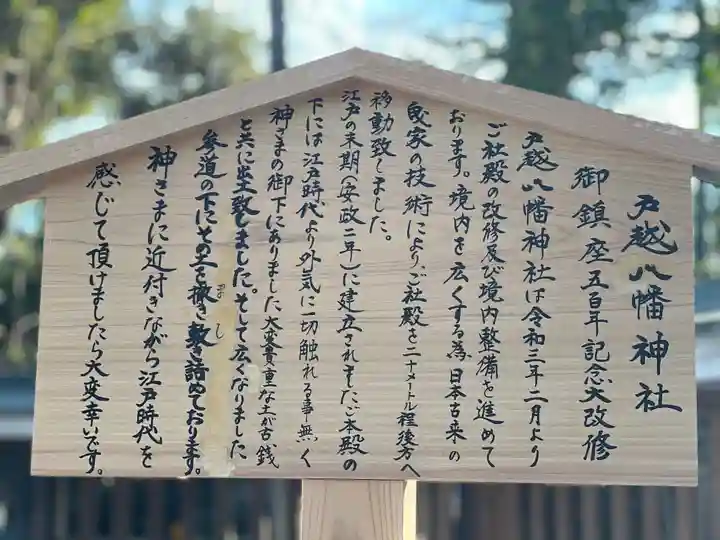 戸越八幡神社
御鎮座五百年記念大改修
戸越八幡神社は令和三年二月より
ご社殿の改修及び境内整備を進めて
おります。境内を広くする為、日本古来の
曳家の技術により、ご社殿を二十メートル程後方へ
移動致しました。
江戸の末期(安政二年)に建立されましたご本殿の
下には江戸時代より外気に一切触れる事無く
神さまの御下にありました大変貴重な土が古銭
と共に出土致しました。そして広くなりました
参道の下にその土を撒き敷き詰めております。
まし
神さまに近付きながら江戸時代を
感じて頂けましたら大変幸いです。